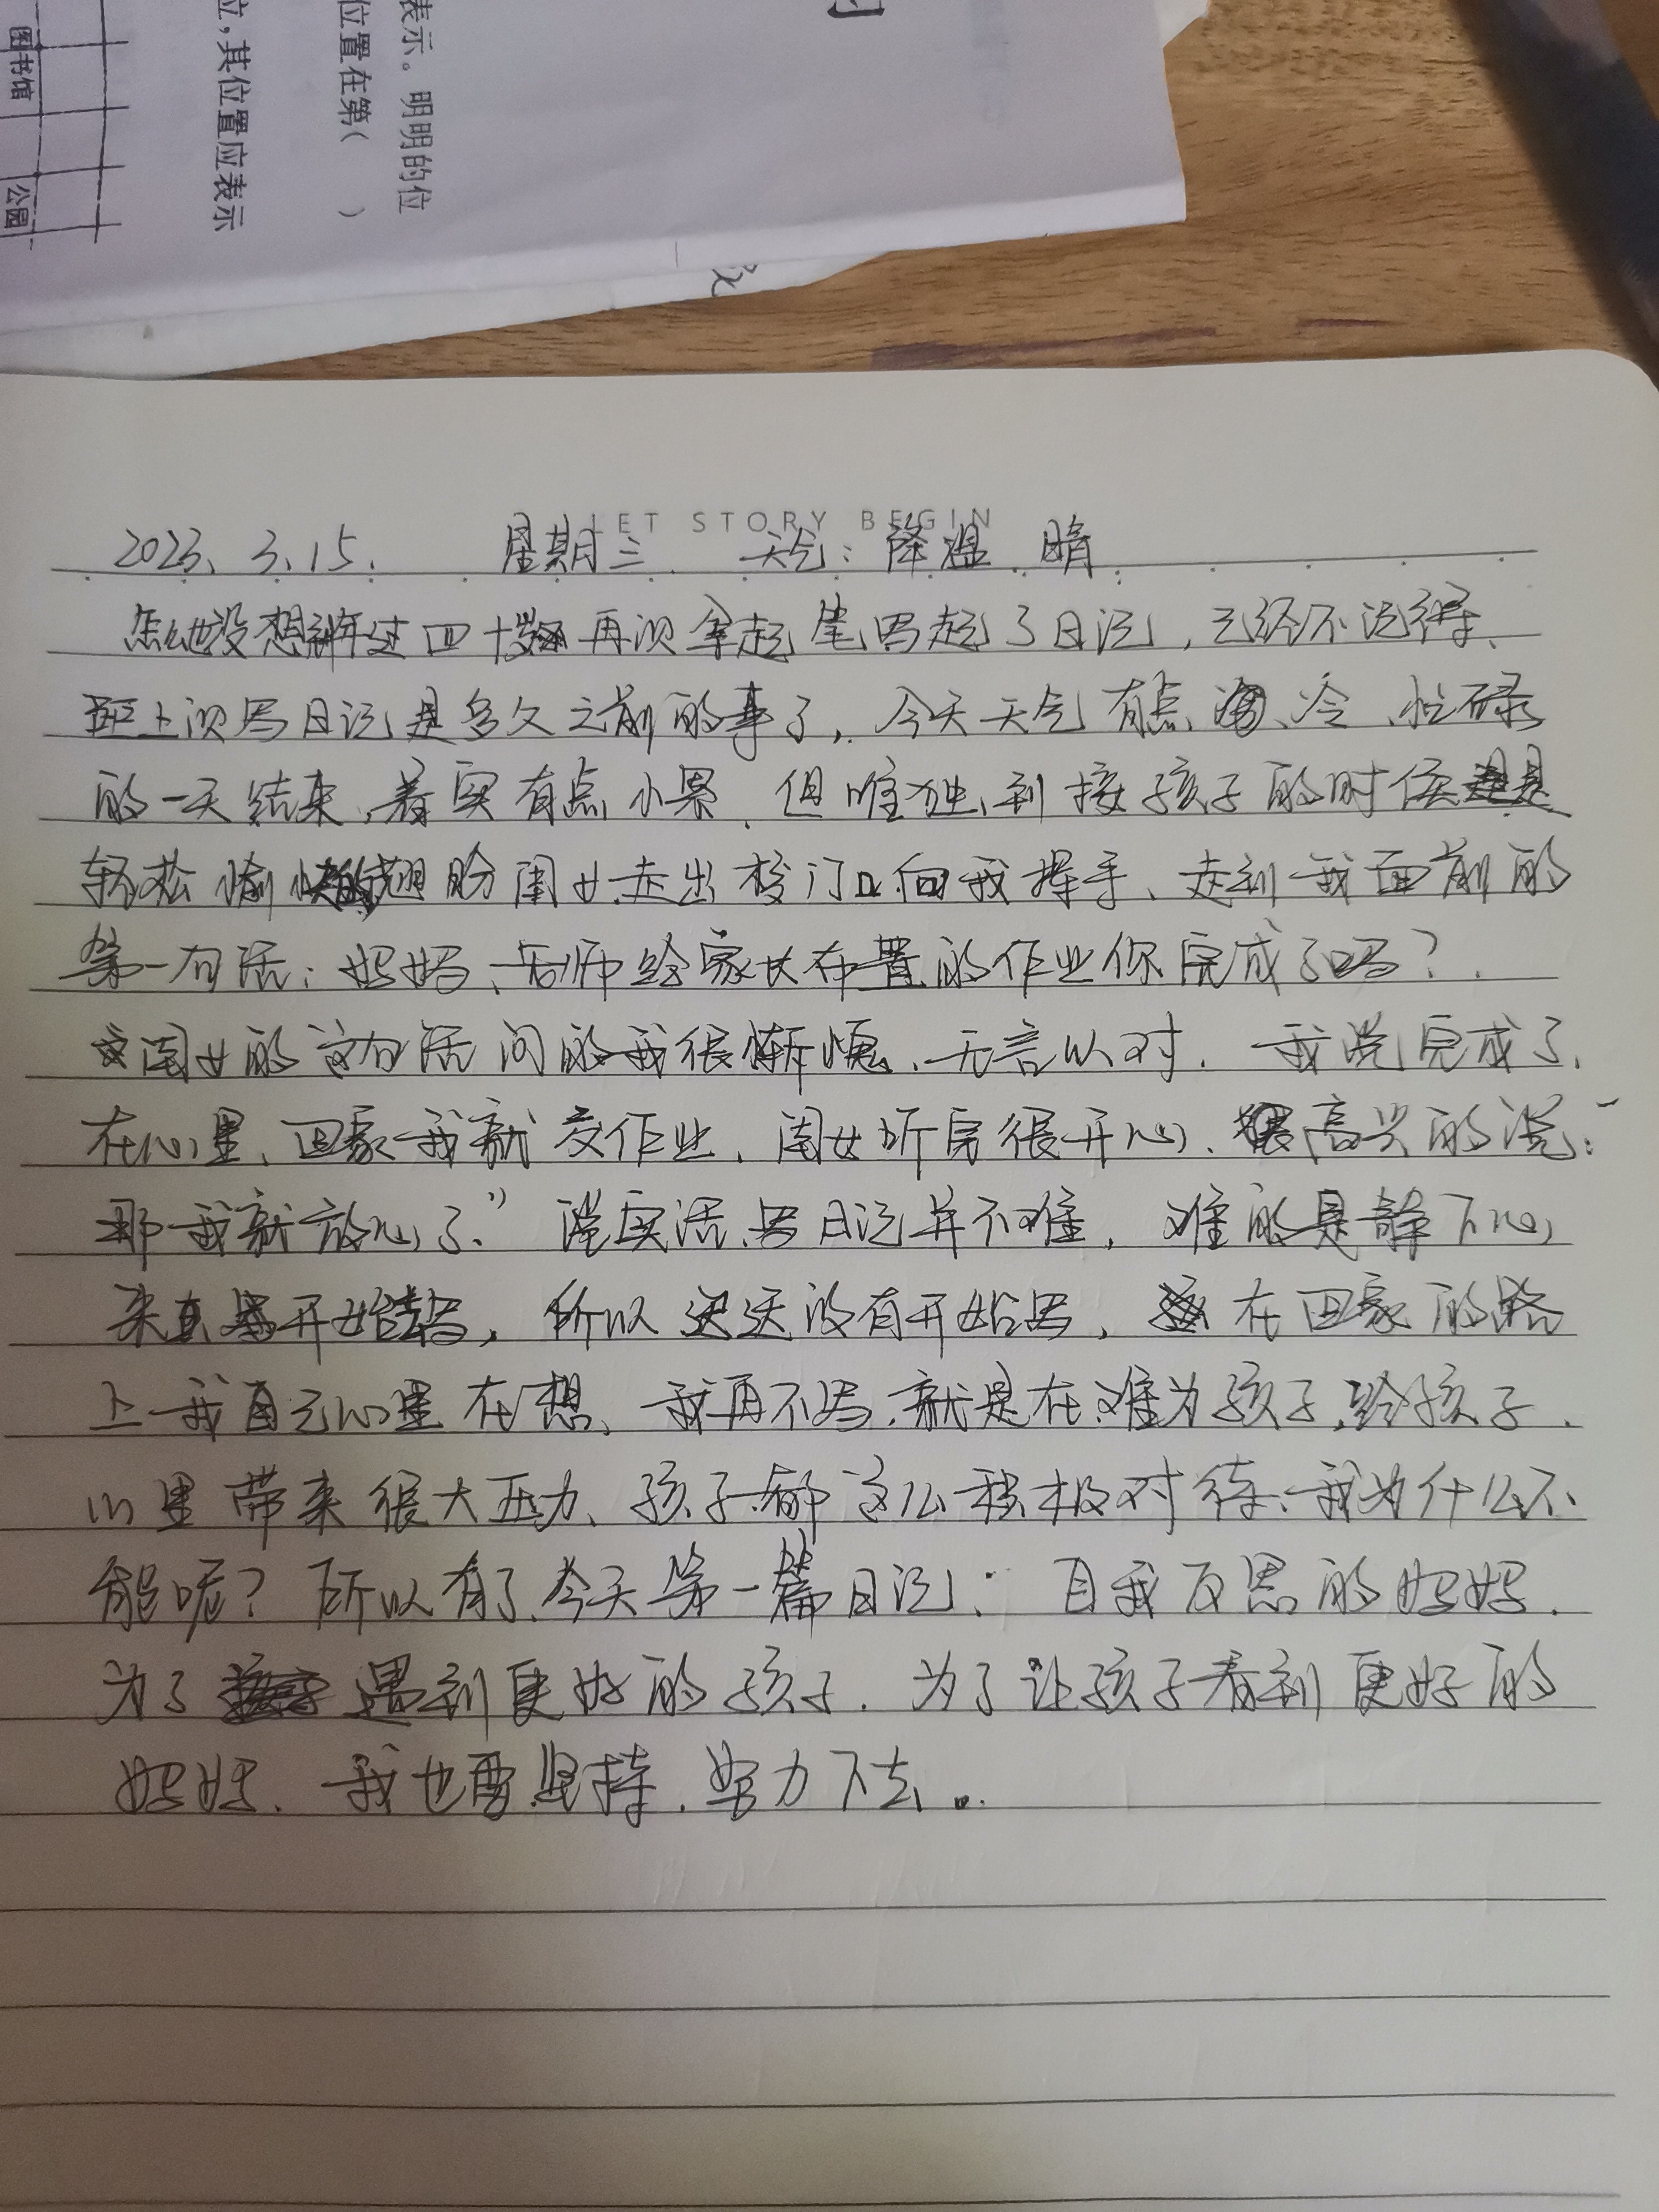 表示。明明的位
位置在第(    )
位,其位置应表示
图书馆
公园
LET STORY BEGIN
2023、3、15.  星期三  天气：降温 晴
怎么也没想到年过四十再次拿起笔写起了日记，已经不记得、
距上次写日记是多久之前的事了，今天天气有点冷、忙碌
的一天结束、着实有点小累、但唯独、到接孩子的时候是
轻松愉快的翘盼闺女走出校门口向我挥手、走到我面前的
第一句话：妈妈、老师给家长布置的作业你完成了吗？
闺女的这句话问的我很惭愧、无言以对. 我说完成了、
在心里、回家我就交作业、闺女听完很开心、很高兴的说：“
那我就放心了.” 说实话、写日记并不难，难的是静下心
来开始写，所以迟迟没有开始写，在回家的路
上我自己心里在想、我再不写、就是在难为孩子、给孩子、
心里带来很大压力、孩子都这么积极对待、我为什么不
能呢？所以有了、今天第一篇日记：自我反思的妈妈.
为了遇到更好的孩子. 为了让孩子看到更好的
妈妈. 我也要坚持. 努力下去。